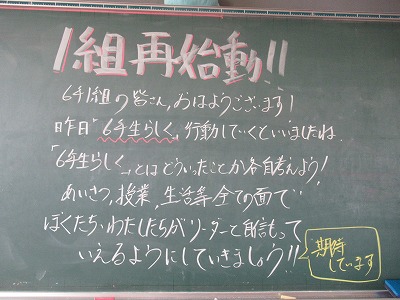 1組再始動!!
6年1組の皆さん,おはようございます!
昨日「6年生らしく」行動していくといいましたね.
「6年生らしく」とはどういったことか各自考えよう!
あいさつ,授業,生活等全ての面で
ぼくたち・わたしたちがリーダーと自信もって
いえるようにしていきましょう!!
期待
しています